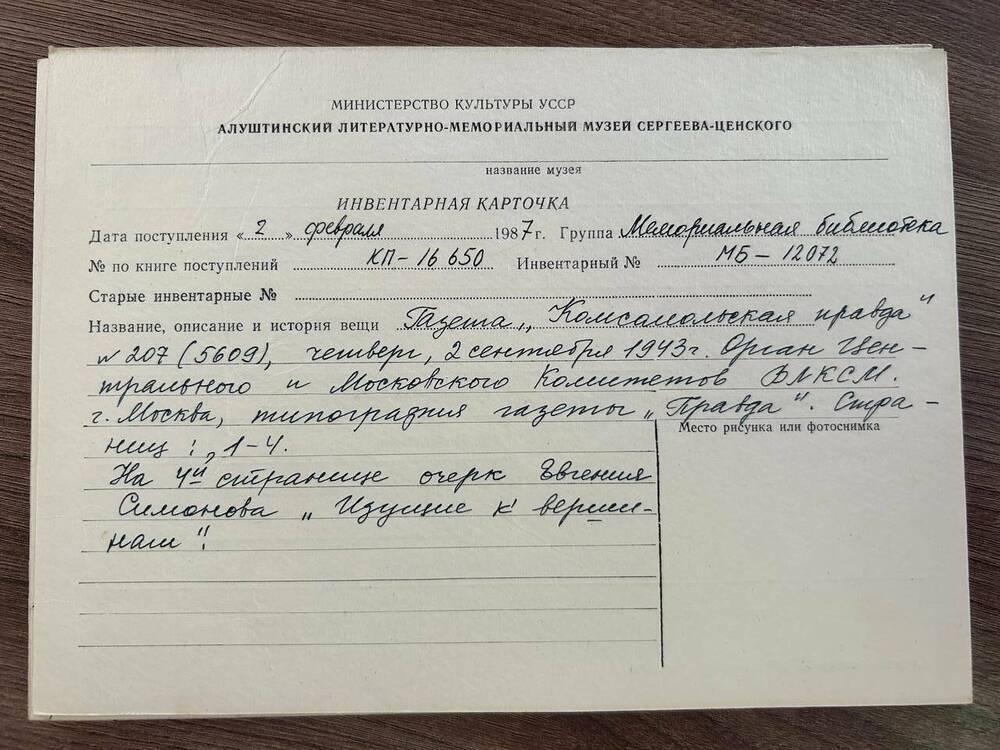 МИНИСТЕРСТВО КУЛЬТУРЫ УССР
АЛУШТИНСКИЙ ЛИТЕРАТУРНО-МЕМОРИАЛЬНЫЙ МУЗЕЙ СЕРГЕЕВА-ЦЕНСКОГО
название музея
ИНВЕНТАРНАЯ КАРТОЧКА
Дата поступления «2» февраля 1987 г. Группа Мемориальная библиотека
№ по книге поступлений КП-16 650 Инвентарный № МБ-12072
Старые инвентарные №
Название, описание и история вещи Газета „Комсомольская правда"
№ 207 (5609), четверг, 2 сентября 1943 г. Орган Цен-
трального и Московского Комитетов ВЛКСМ.
г. Москва, типография газеты „Правда". Стра-
ниц: 1-4.
Место рисунка или фотоснимка
На 4й странице очерк Евгения
Симонова „Идущие к верши-
нам".